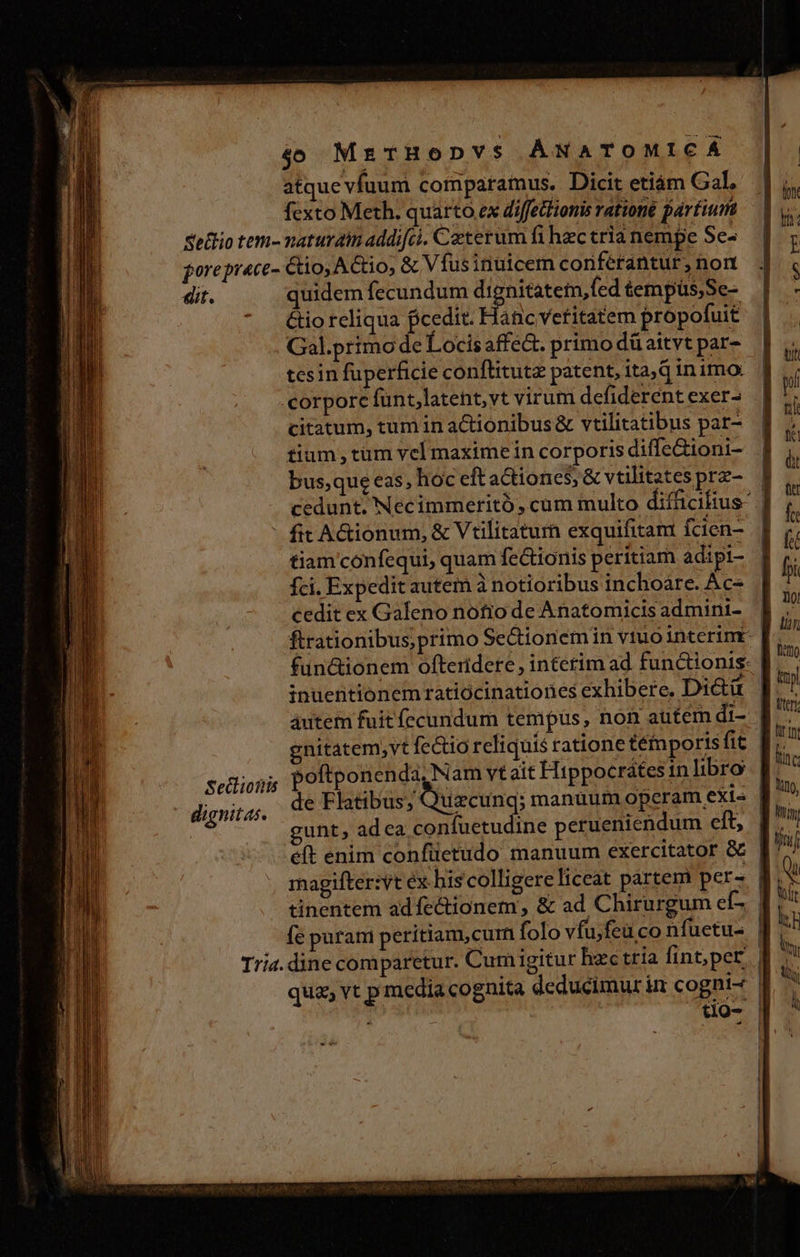 50 METHODVS ANATOMICA
atque vſuum comparamus. Dicit etiám Gal.
ſexto Meth. quarto ex diſſectionis ratione partium
Sectio tem- naturam addiſci. Cæterum ſi hæc tria nempe Se-
pore præce- ctio, Actio, & Vſus inuicem conferantur, non
dit. quidem ſecundum dignitatem, ſed tempus, Se-
ctio reliqua p̄cedit. Hanc veritatem propoſuit
Gal. primo de Locis affect. primo dū ait vt par-
tes in ſuperficie conſtitutæ patent, ita, q̄ in imo
corpore ſunt, latent, vt virum deſiderent exer-
citatum, tum in actionibus & vtilitatibus par-
tium, tum vel maxime in corporis diſſectioni-
bus, quę eas, hoc eſt actiones, & vtilitates præ-
cedunt. Nec immeritò, cum multo difficilius
ſit Actionum, & Vtilitatum exquiſitam ſcien-
tiam conſequi, quam ſectionis peritiam adipi-
ſci. Expedit autem à notioribus inchoare. Ac-
cedit ex Galeno notio de Anatomicis admini-
ſtrationibus, primo Sectionem in viuo interim
functionem oſtendere, interim ad functionis
inuentionem ratiocinationes exhibere. Dictū
autem fuit ſecundum tempus, non autem di-
gnitatem, vt ſectio reliquis ratione temporis ſit
Sectionis poſtponenda, Nam vt ait Hippocrátes in libro
dignitas. de Flatibus, Quæcunq; manuum operam exi-
gunt, ad ea conſuetudine perueniendum eſt,
eſt enim conſuetudo manuum exercitator &
magiſter: vt ex his colligere liceat partem per-
tinentem ad ſectionem, & ad Chirurgum eſ-
ſe puram peritiam, cum ſolo vſu, ſeu co nſuetu-
Tria. dine comparetur. Cum igitur hæc tria ſint, per
quæ, vt p media cognita deducimur in cogni-
tio-